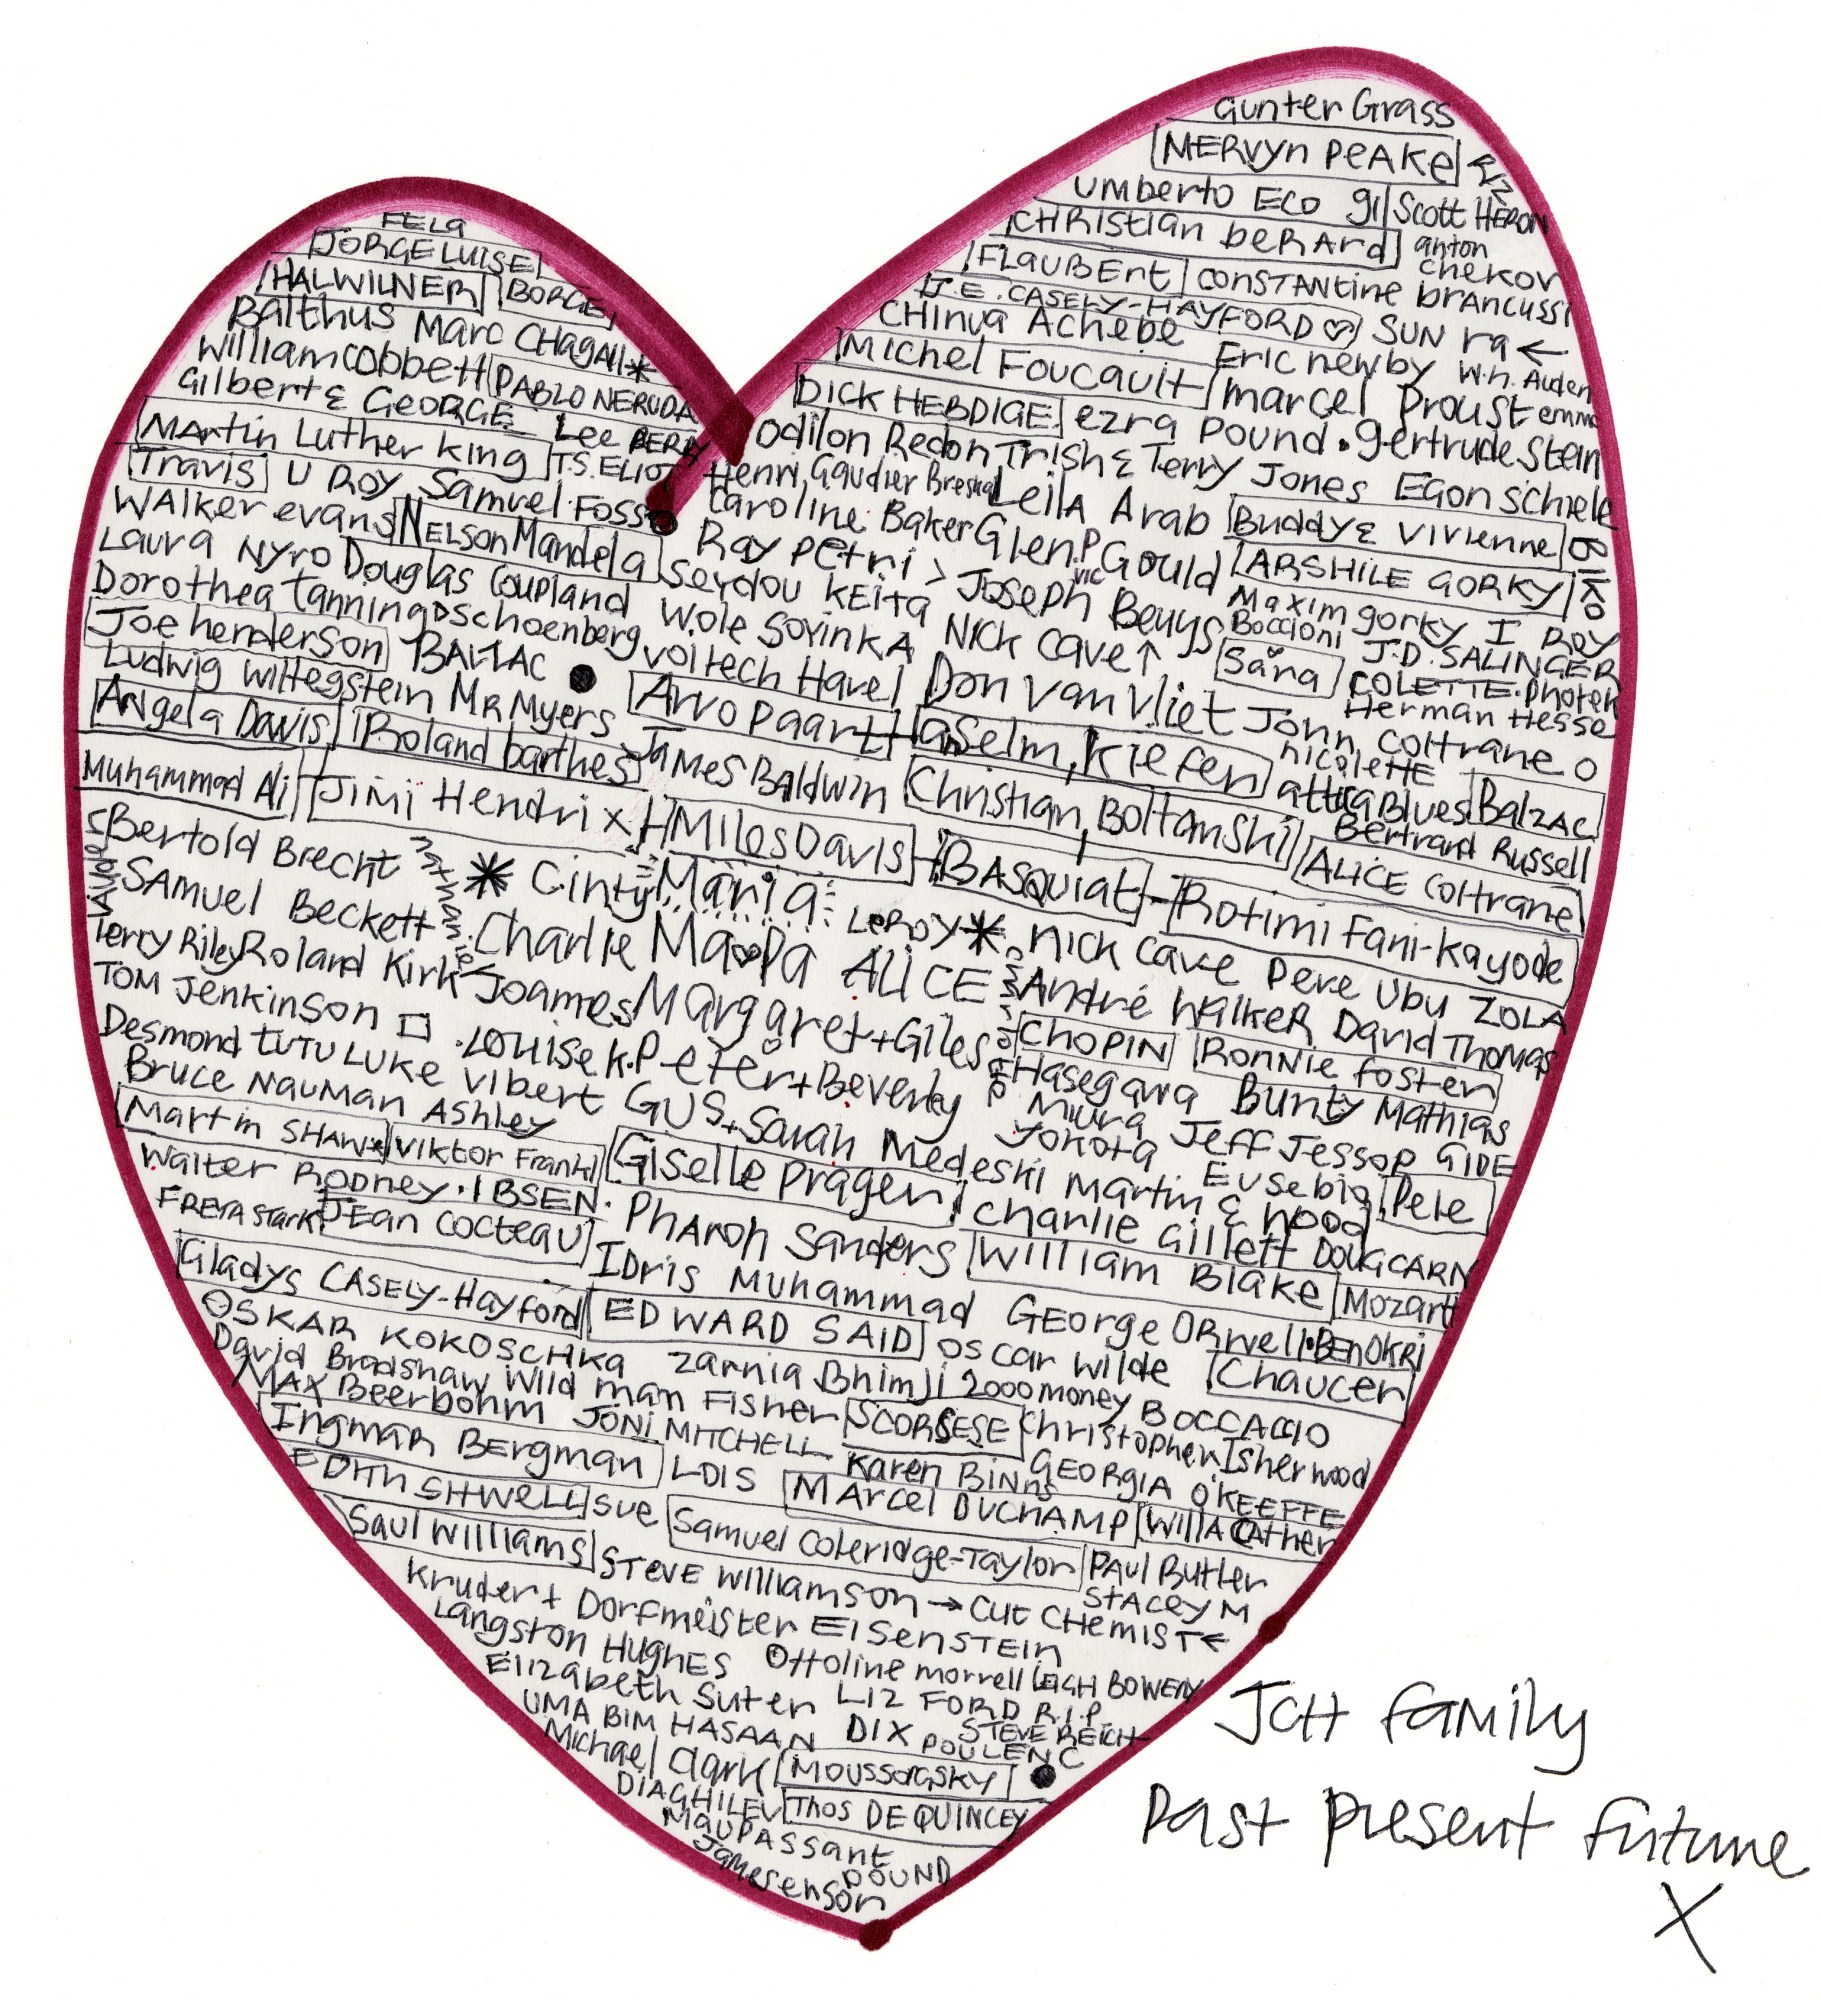 FELA
JORGE LUISE
HALWILNER BORGE
Balthus Marc CHagAll*
William cobbett PABLO NERUDA
Gilbert & GEORGE Lee BERRY
Martin Luther King T.S. ELIOT
Travis U ROY Samuel Fosso
Walker evans NELSON Mandela
Laura NYRO Douglas Coupland
Dorothea Tanning Schoenberg
Joe henderson BALTAC
Ludwig Wittegstein MR Myers
Angela Davis Roland barthes James BAldwin
Muhammad Ali Jimi Hendrix Miles Davis BASQUIAT Rotimi Fani-Kayode
Gunter Grass
MERVYN PEAKE
Umberto ECO gil Scott HERON
CHRistian beRARd anton chekov
FLAUBERT CONSTANtine brANCUSSI
J.E. CASELY-HAYFORD SUN ra ←
CHinua Achebe Eric newby W.H. Auden
Michel Foucault marcel Proust emma
DICK HEBDIGE ezra pound • gertrude Stein
Odilon Redon Trish & Terry Jones EGON SCHIELE
Henri Gaudier Breska Leila Arab Buddy & Vivienne BIKO
Caroline Baker Glen Gould ARSHILE GORKY
Ray Petri > JOSEPH Beuys Maxim gorky I ROY
Seydou KEITA NICK Cave ↑ Boccioni J.D. SALINGER
Wole SOYINKA Sana COLETTE • photek
Voitech Havel Don Van Vliet John Coltrane Herman Hesse
Arvo Paart anselm, Kiefer nicolette
attica Blues Balzac
Christian, Boltanski Bertrand Russell
ALICE Coltrane
Bertold Brecht * Cinty Maria LeROY*
SAMUEL Beckett Charlie Ma Pa ALICE NICK Cave Pere Ubu ZOLA
Terry Riley Roland Kirk Joames Margaret + Giles André Walker David Thomas
TOM Jenkinson Louise K. Peter + Beverley CHOPIN RonniE foster
Desmond TUTU LUKE Vibert GUS + Sarah Hasegawa Bunty Mathias
Bruce NAUMAN Ashley Medeski Martin & Wood Miura Yokota Jeff Jessop GIDE
Martin SHAW Viktor Frankl Giselle Prager Eusebio Pele
Walter Rodney • IBSEN • Pharoh Sanders Charlie Gillett DOUG CARN
FREYA Stark JEan Cocteau IDris Muhammad William Blake Mozart
Gladys CASELY-Hayford EDWARD SAID George ORwell • BEN OKRI
OSKAR KOKOSCHKA Zarnia Bhimji Oscar Wilde Chaucer
David Bradshaw Wild man Fisher 2000 money BOCCACCIO
MAX Beerbohm JONI MITCHELL SCORSESE Christopher Isherwood
Ingmar Bergman LOIS Karen Binns GEORGIA O'KEEFFE
EDITH SITWELL Sue MArcel DUCHAMP WILLA CAther
Saul Williams Samuel Coleridge-Taylor PAUL Butler
STEVE Williamson → CUT CHEMIST ← STACEY M
Kruder + Dorfmeister EISENSTEIN
Langston HUghES Ottoline morrell LEIGH BOWERY
Elizabeth Suter LIZ FORD R.I.P.
UMA BIM HASAAN DIX STEVE REICH
POULENC
Michael Clark MOUSSORGSKY
DIAGHILEV Thos DE QUINCEY
MAUPASSANT
POUND
James enson
JCH family
Past present future
X